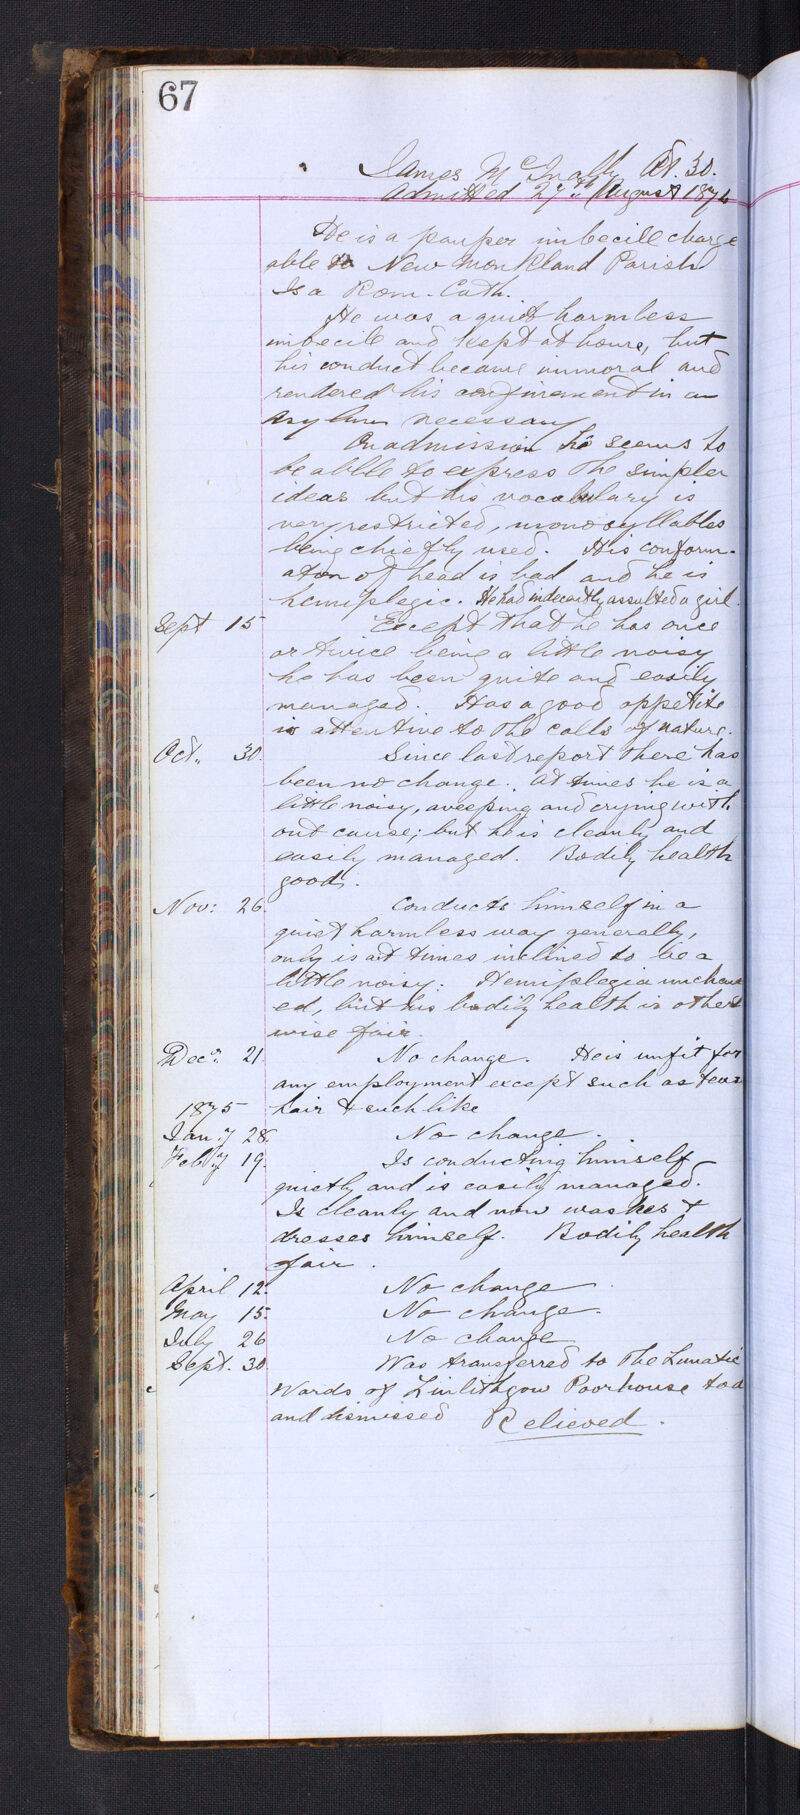 67
James McInally Æt. 30.
Admitted 27th August 1874
He is a pauper imbecile charge
able to New Monkland Parish
Is a Rom. Cath.
He was a quiet harmless
imbecile and kept at home, but
his conduct became immoral and
rendered his confinement in an
asylum necessary
On admission he seems to
be ablle to express the simpler
ideas but his vocabulary is
very restricted, monosyllables
being chiefly used. His conform-
ation of head is bad and he is
hemiplegic. He had indecently assulted a girl.
Sept 15 Except that he has once
or twice being a little noisy
he has been quite and easily
managed. Has a good appetite
is attentive to the calls of nature.
Oct. 30. Since last report there has
been no change. At times he is a
little noisy, weeping and crying with
out cause; but he is cleanly and
easily managed. Bodily health
good.
Nov: 26. Conducts himself in a
quiet harmless way generally,
only is at times inclined to be a
little noisy. Hemiplegia unchang
ed, but his bodily health is other
wise fair.
Decr. 21 No change. He is unfit for
any employment except such as teas
1875 hair & such like
Jany 28. No change.
Feby 19. Is conducting himself
quietly and is easily managed.
Is cleanly and now washes &
dresses himself. Bodily health
fair.
April 12. No change
May 15. No change.
July 26 No change
Sept. 30. Was transferred to the Lunatic
Wards of Linlithgow Poorhouse
and dismissed Relieved.